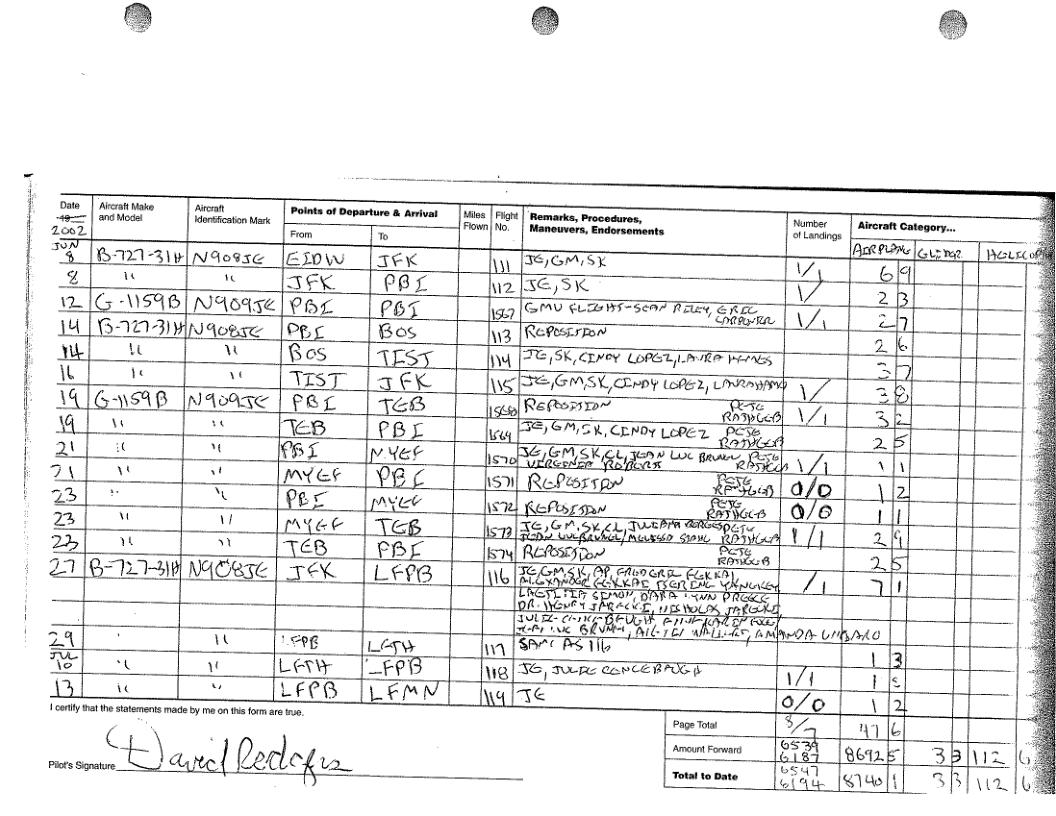 Date Aircraft Make and Model Aircraft Identification Mark Points of Departure & Arrival Miles Flown Flight No. Remarks, Procedures, Maneuvers, Endorsements Number of Landings Aircraft Category...
19 2002 From To AIRPLANE GLIDER HELICOPTER
JUN 8 B-727-31H N908JE EIDW JFK 111 JE, GM, SK 1/1 6 9
8 " " JFK PBI 112 JE, SK 1/ 2 3
12 G-1159B N909JE PBI PBI 1567 GMU FLIGHT-SEAN RILEY, ERIC CARPENTER 1/1 2 7
14 B-727-31H N908JE PBI BOS 113 REPOSITION 2 6
14 " " BOS TIST 114 JE, SK, CINDY LOPEZ, 3 7
16 " " TIST JFK 115 JE, GM, SK, CINDY LOPEZ, 1/ 3 8
19 G-1159B N909JE PBI TEB 1568 REPOSITION PETE RATHGEB 1/1 3 2
19 " " TEB PBI 1569 JE, GM, SK, CINDY LOPEZ PETE RATHGEB 2 5
21 " " PBI MYEF 1570 JE, GM, SK, CL, JEAN LUC BRUNEL PETE
VIRGINIA ROBERTS RATHGEB 1/1 1 1
21 " " MYEF PBI 1571 REPOSITION PETE RATHGEB 0/0 1 2
23 " " PBI MYEF 1572 REPOSITION PETE RATHGEB 0/0 1 1
23 " " MYEF TEB 1573 JE, GM, SK, CL, PETE
JEAN LUC BRUNEL, RATHGEB 1/1 2 9
23 " " TEB PBI 1574 REPOSITION PETE RATHGEB 2 5
27 B-727-31H N908JE JFK LFPB 116 JE, GM, SK, AP, FREDERIC FEKKAI, /1 7 1
ALEXANDER FEKKAI,
SIMON, DARA LYNN PREECE
DR. HENRY JARECKI, NICHOLAS JARECKI
AMANDA
29 " LFPB LFTH 117 SAME AS 116 1 3
JUL 10 " " LFTH LFPB 118 JE, JULIE 1/1 1
13 " " LFPB LFMN 119 JE 0/0 1 2
I certify that the statements made by me on this form are true.
Page Total 8/7 47 6
Amount Forward 6539 6187 8692 5 3 3 112 6
Pilot's Signature David Rodgers Total to Date 6547 6194 8740 1 3 3 112 6